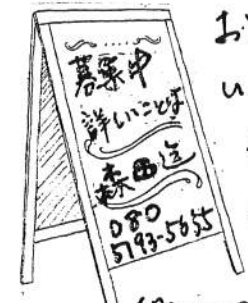 募集中
詳しいことは
森田迄
080
5793-5655
お
い